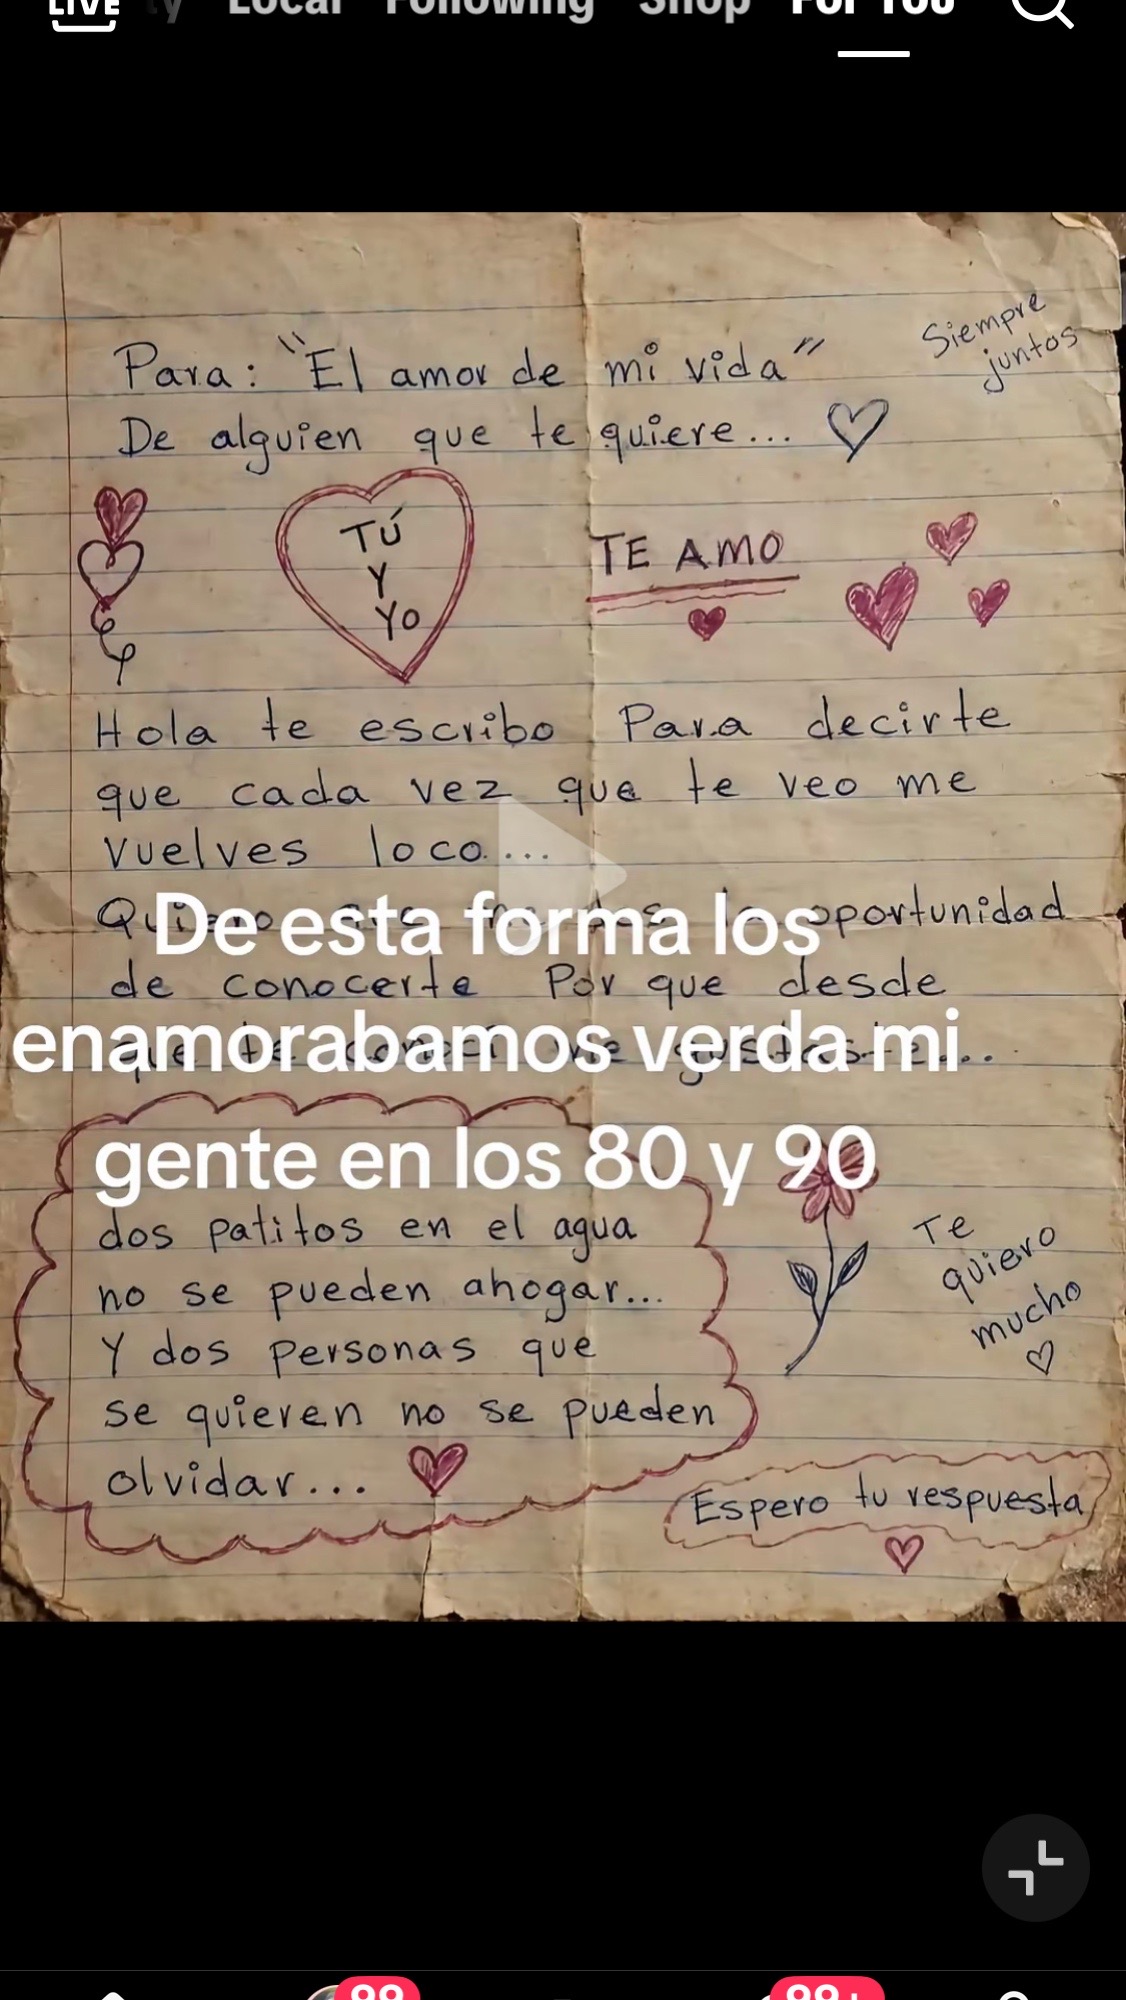 LIVE
Local Following Shop For You
Siempre
juntos
Para: "El amor de mi vida"
De alguien que te quiere...
TÚ
Y
Yo
TE AMO
Hola te escribo Para decirte
que cada vez que te veo me
vuelves loco...
oportunidad
de conocerte Por que desde
De esta forma los
enamorabamos verda mi
gente en los 80 y 90
dos patitos en el agua
no se pueden ahogar...
Y dos personas que
se quieren no se pueden
olvidar...
Te
quiero
mucho
Espero tu respuesta
99
99+